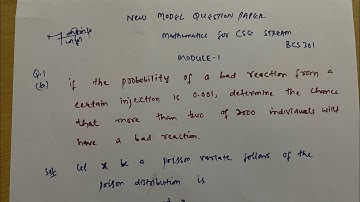 NEW MODEL QUESTION PAPER
Mathematics for CSE STREAM
BCS301
MODULE-1
Q.1
(b) if the probability of a bad reaction from a
certain injection is 0.001, determine the chance
that more than two of 2000 individuals will
have a bad reaction.
Let X be a poisson variate follows of the
poison distribution is